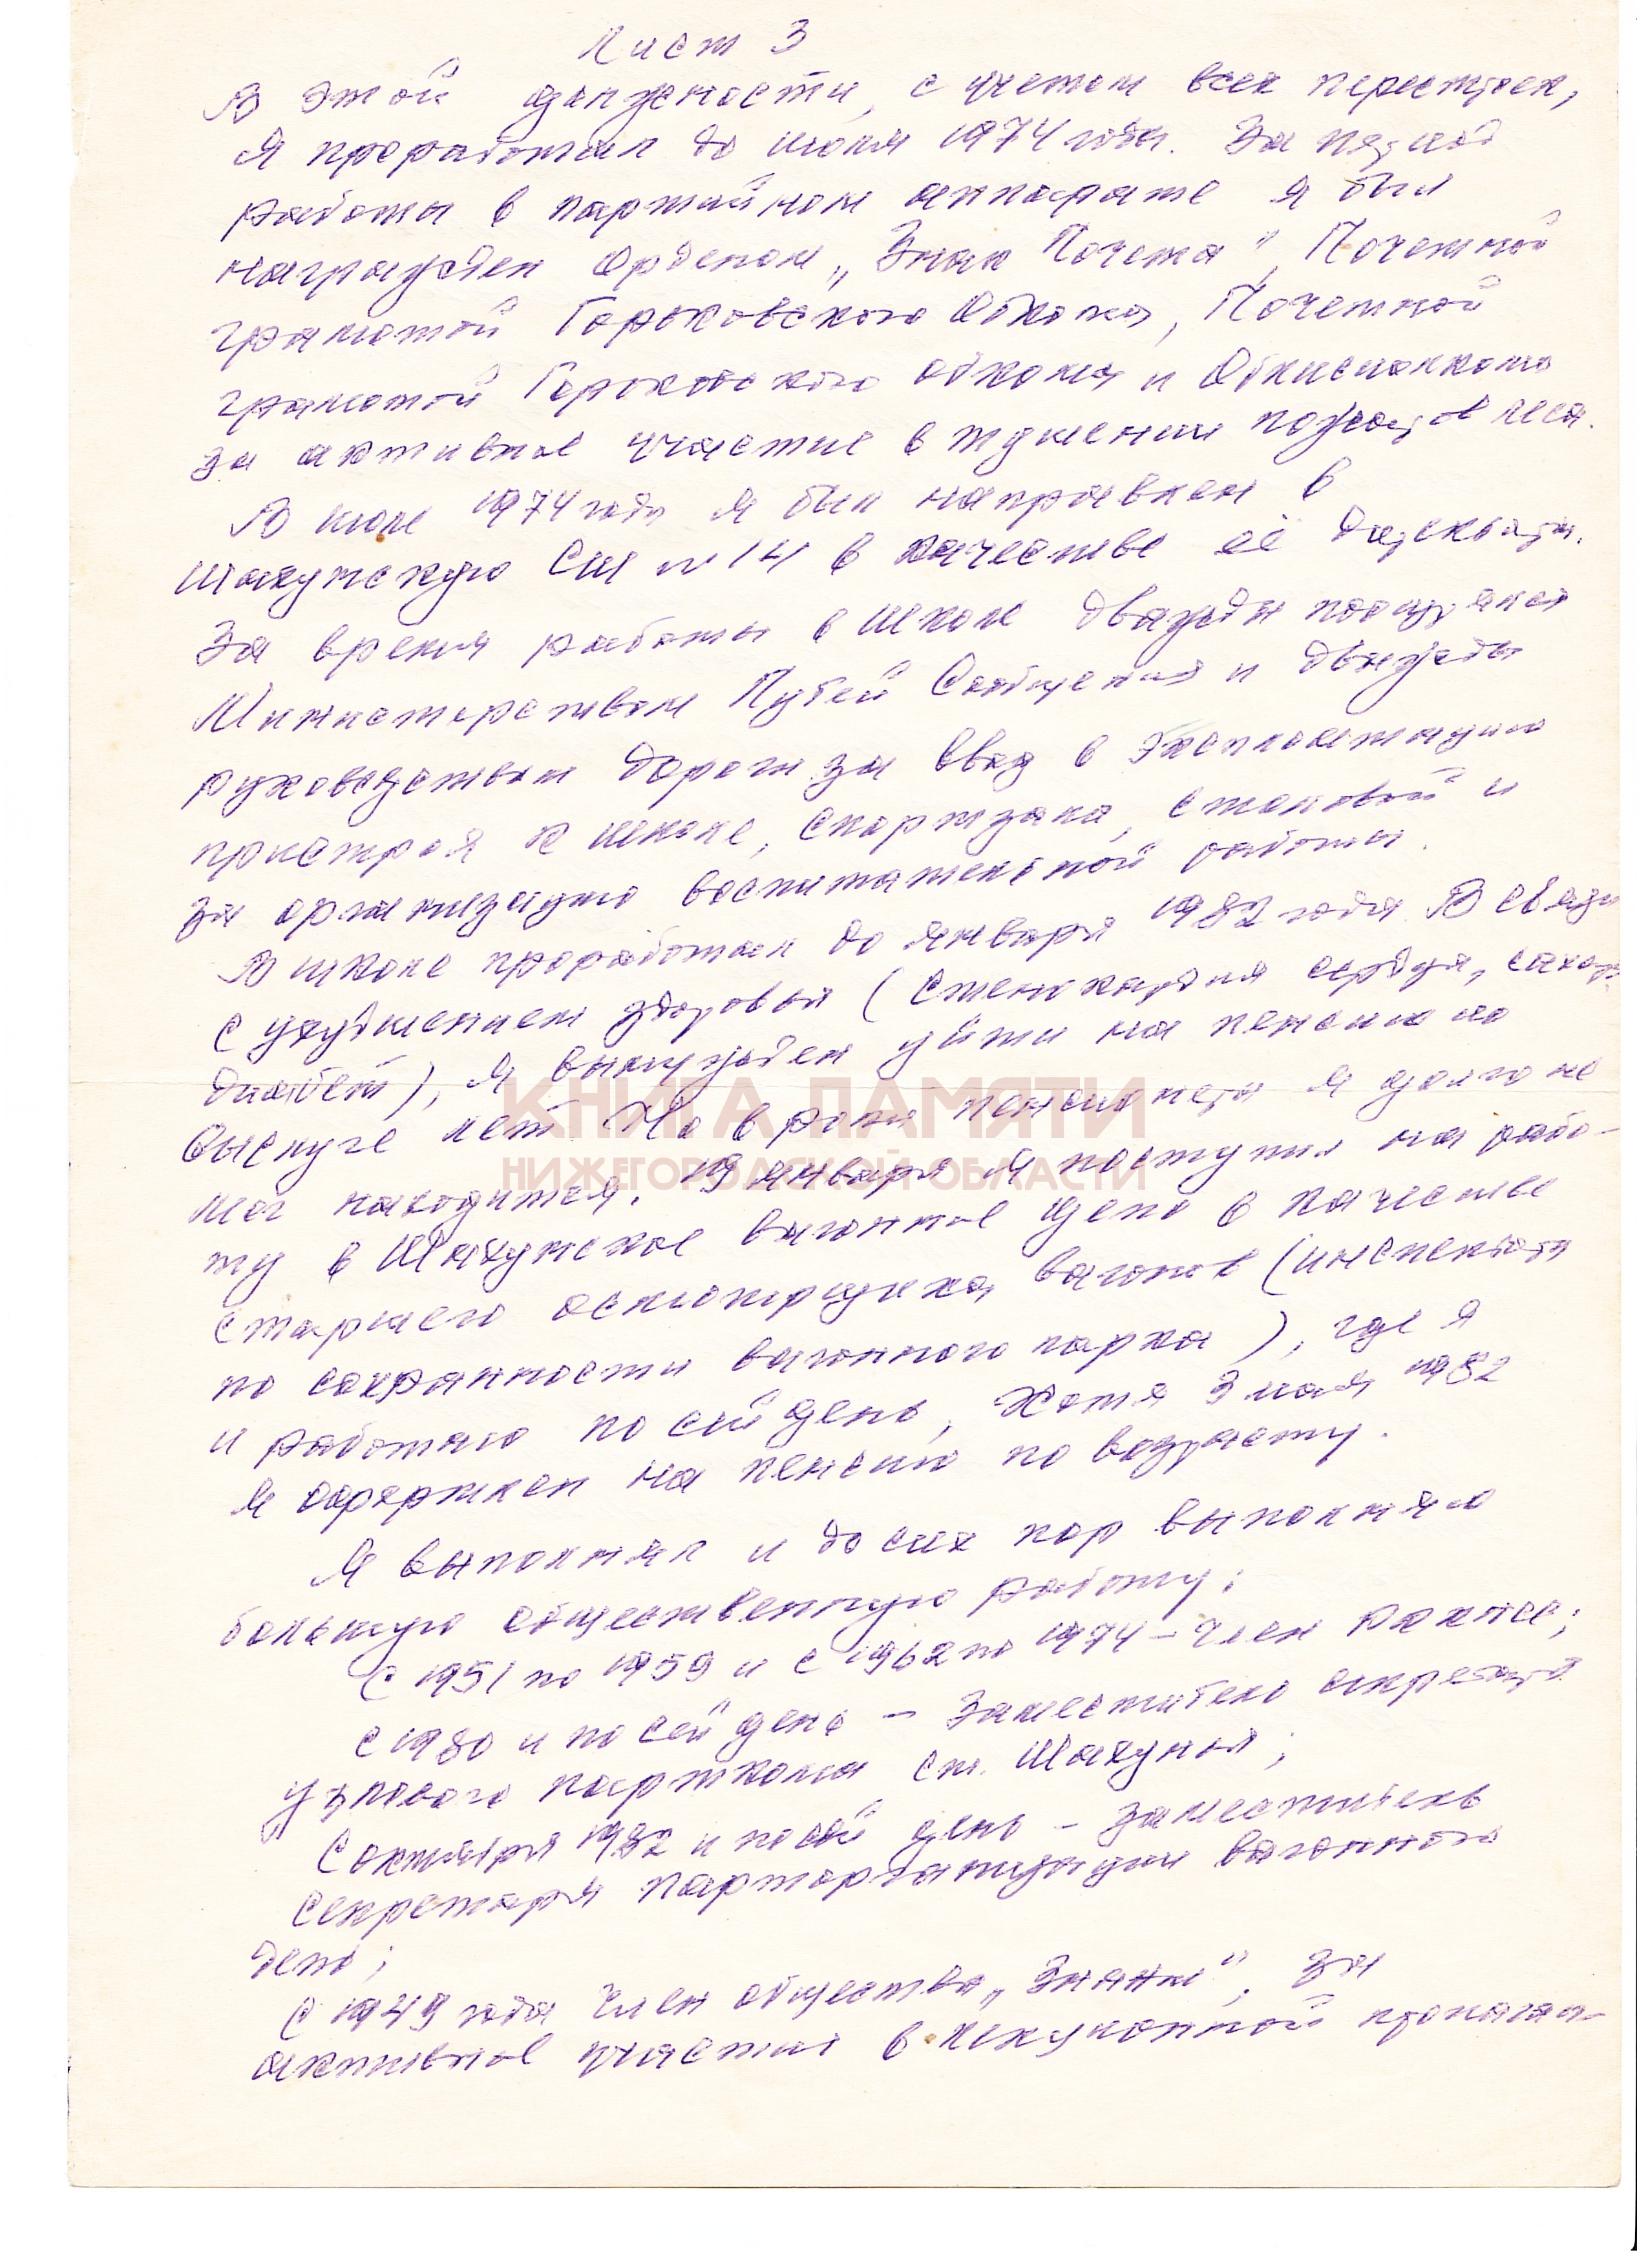 Лист 3
В этой должности, с учетом всех перестроек,
я проработал до июля 1974 года. За период
работы в партийном аппарате я был
награжден Орденом „Знак Почета", Почетной
грамотой Горьковского Обкома, Почетной
грамотой Горьковского обкома и Облисполкома
за активное участие в тушении пожаров леса.
В июле 1974 года я был направлен в
Шахунскую СШ №14 в качестве её директора.
За время работы в школе дважды поощрялся
Министерством Путей Сообщения и дважды
руководством дороги за ввод в эксплоатацию
пристроя к школе, спортзала, столовой и
за организацию воспитательной работы.
В школе проработал до января 1982 года. В связи
с ухудшением здоровья (стенокардия сердца, сахарн.
диабет), я вынужден уйти на пенсию по
выслуге лет. Но в роли пенсионера я долго не
мог находится. 19 января я поступил на рабо-
ту в Шахунское вагонное депо в качестве
старшего осмотрщика вагонов (инспектора
по сохранности вагонного парка), где я
и работаю по сий день, хотя 3 мая 1982
я оформлен на пенсию по возрасту.
Я выполнял и до сих пор выполняю
большую общественную работу:
С 1951 по 1959 и с 1962 по 1974 – член РК КПСС;
с 1980 и по сей день – Заместитель секретаря
узлового парткома ст. Шахунья;
С октября 1982 и по сей день – заместитель
секретаря парторганизации вагонного
депо;
С 1949 года член общества „Знание", за
активное участие в лекционной пропаган-
КНИГА ПАМЯТИ
НИЖЕГОРОДСКОЙ ОБЛАСТИ